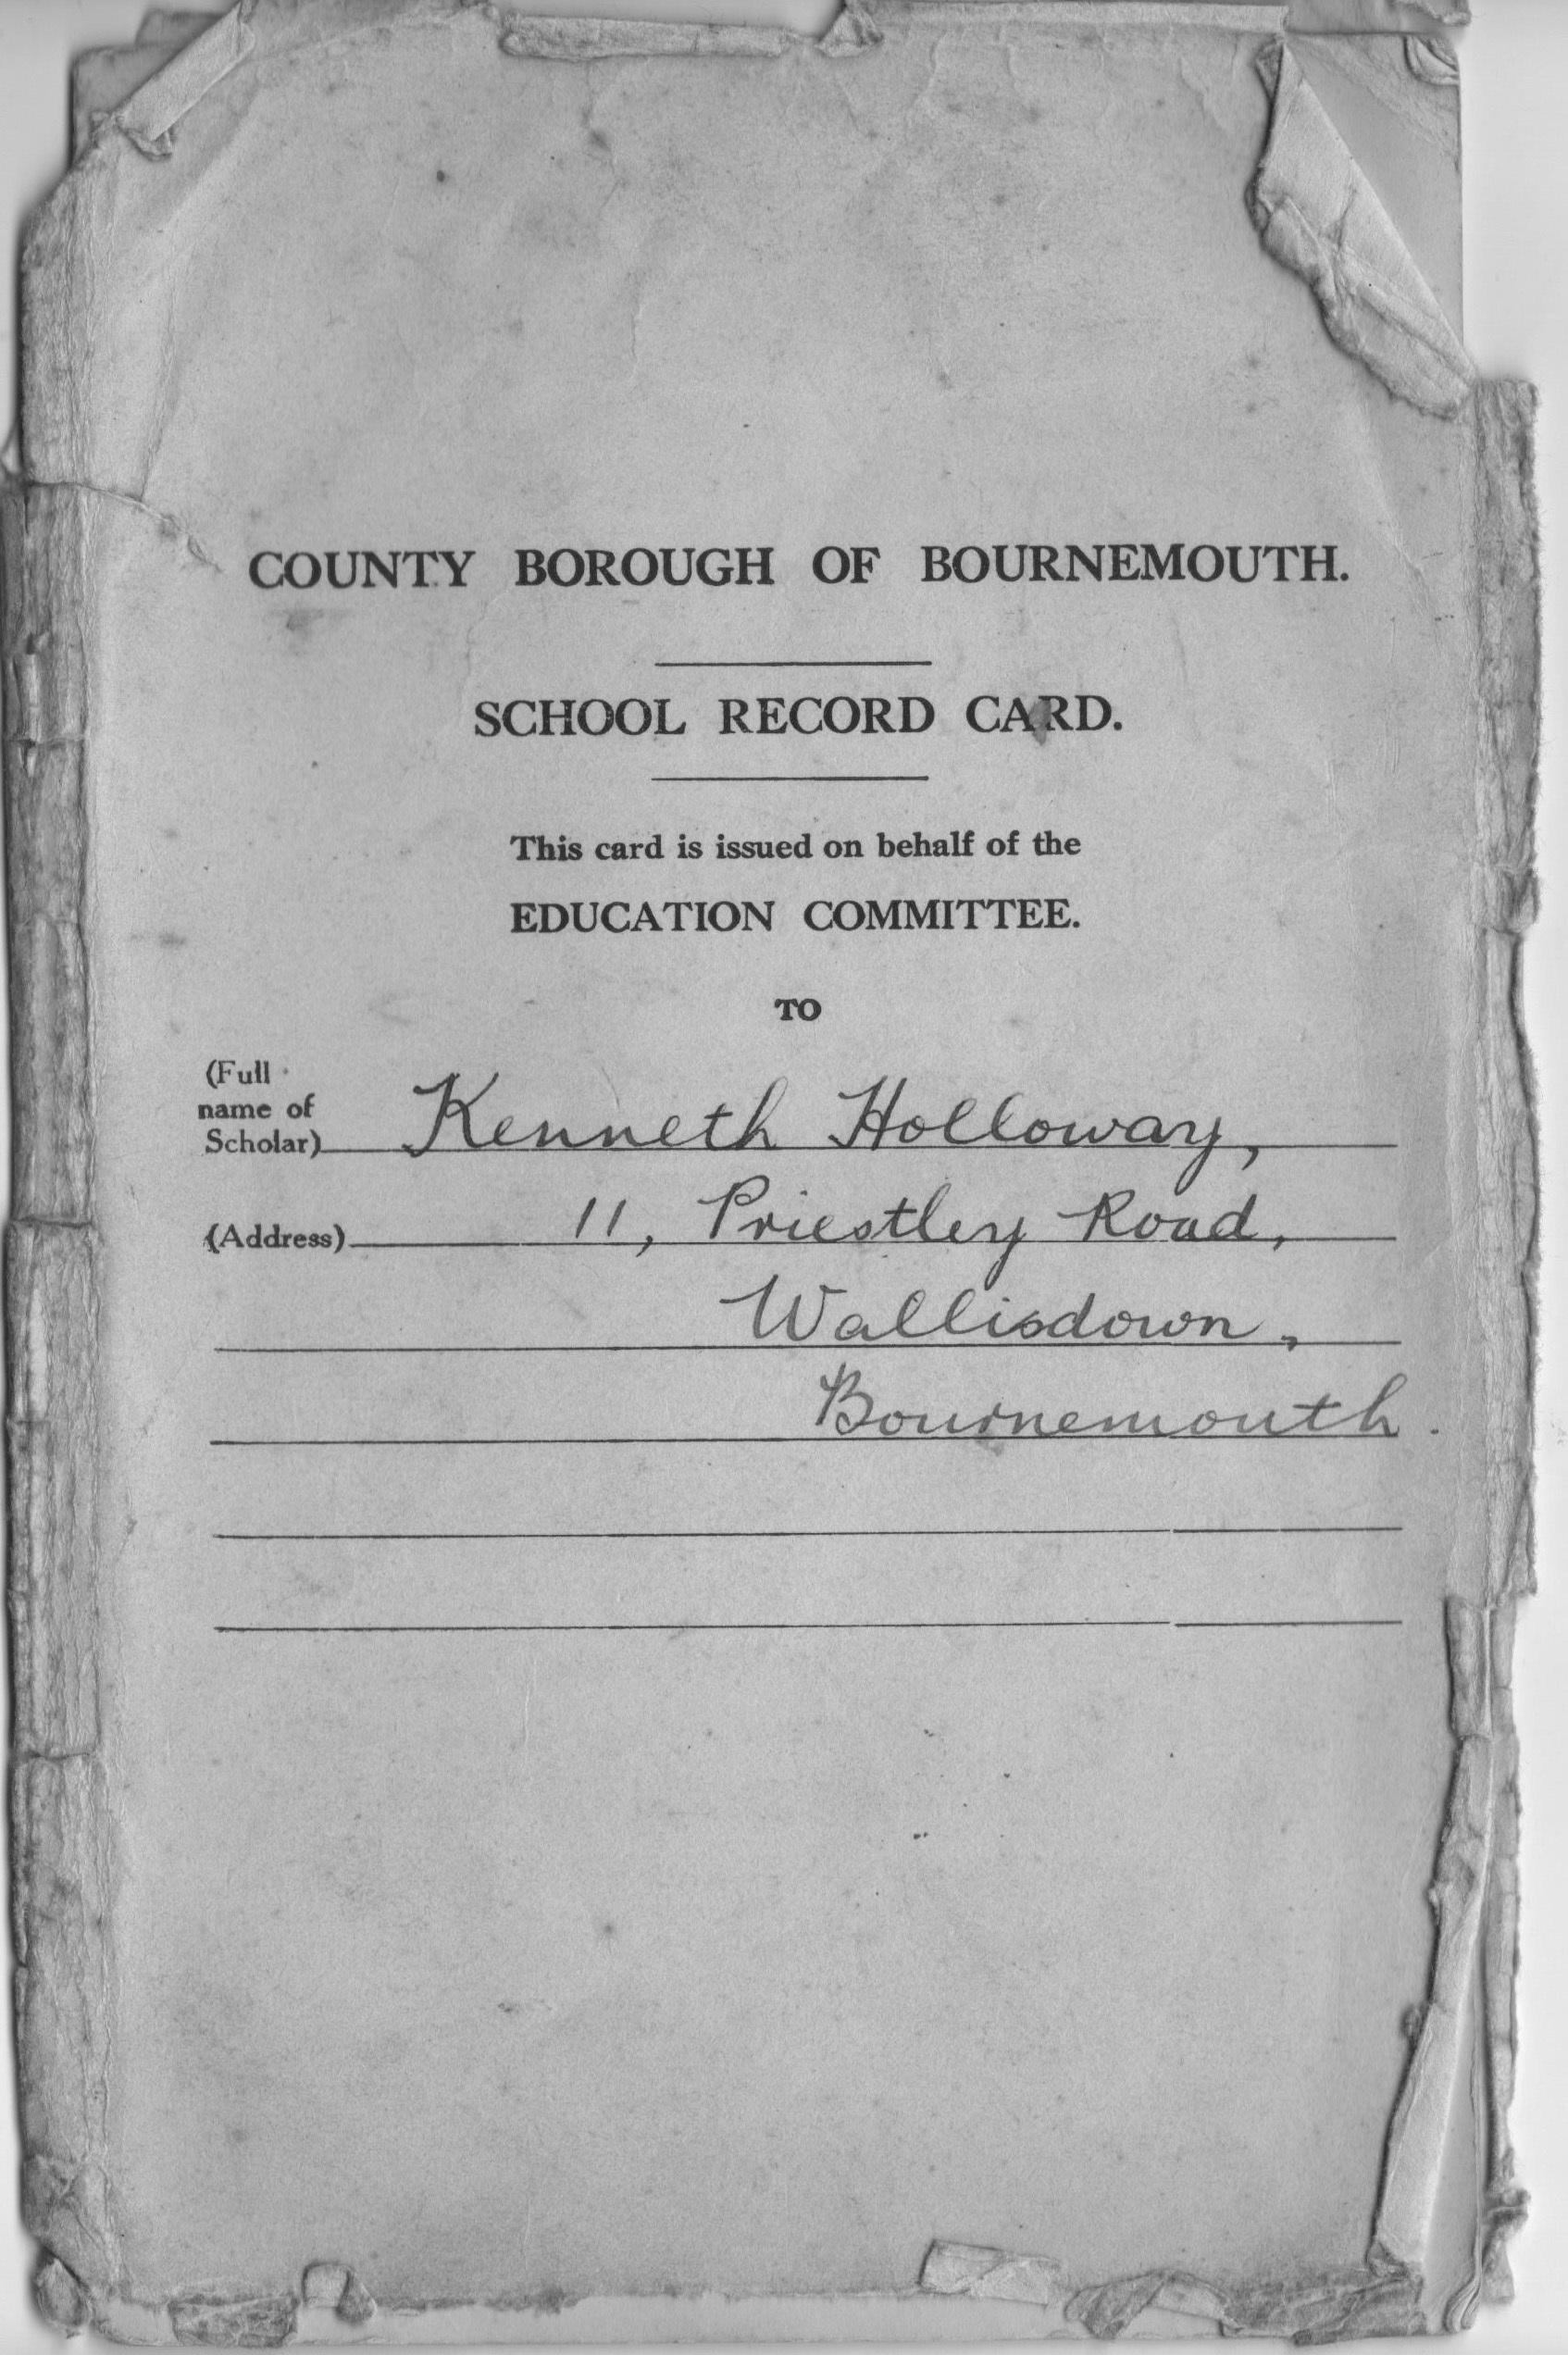 COUNTY BOROUGH OF BOURNEMOUTH.
SCHOOL RECORD CARD.
This card is issued on behalf of the
EDUCATION COMMITTEE.
TO
(Full
name of
Scholar) Kenneth Holloway,
(Address) 11, Priestley Road,
Wallisdown,
Bournemouth.